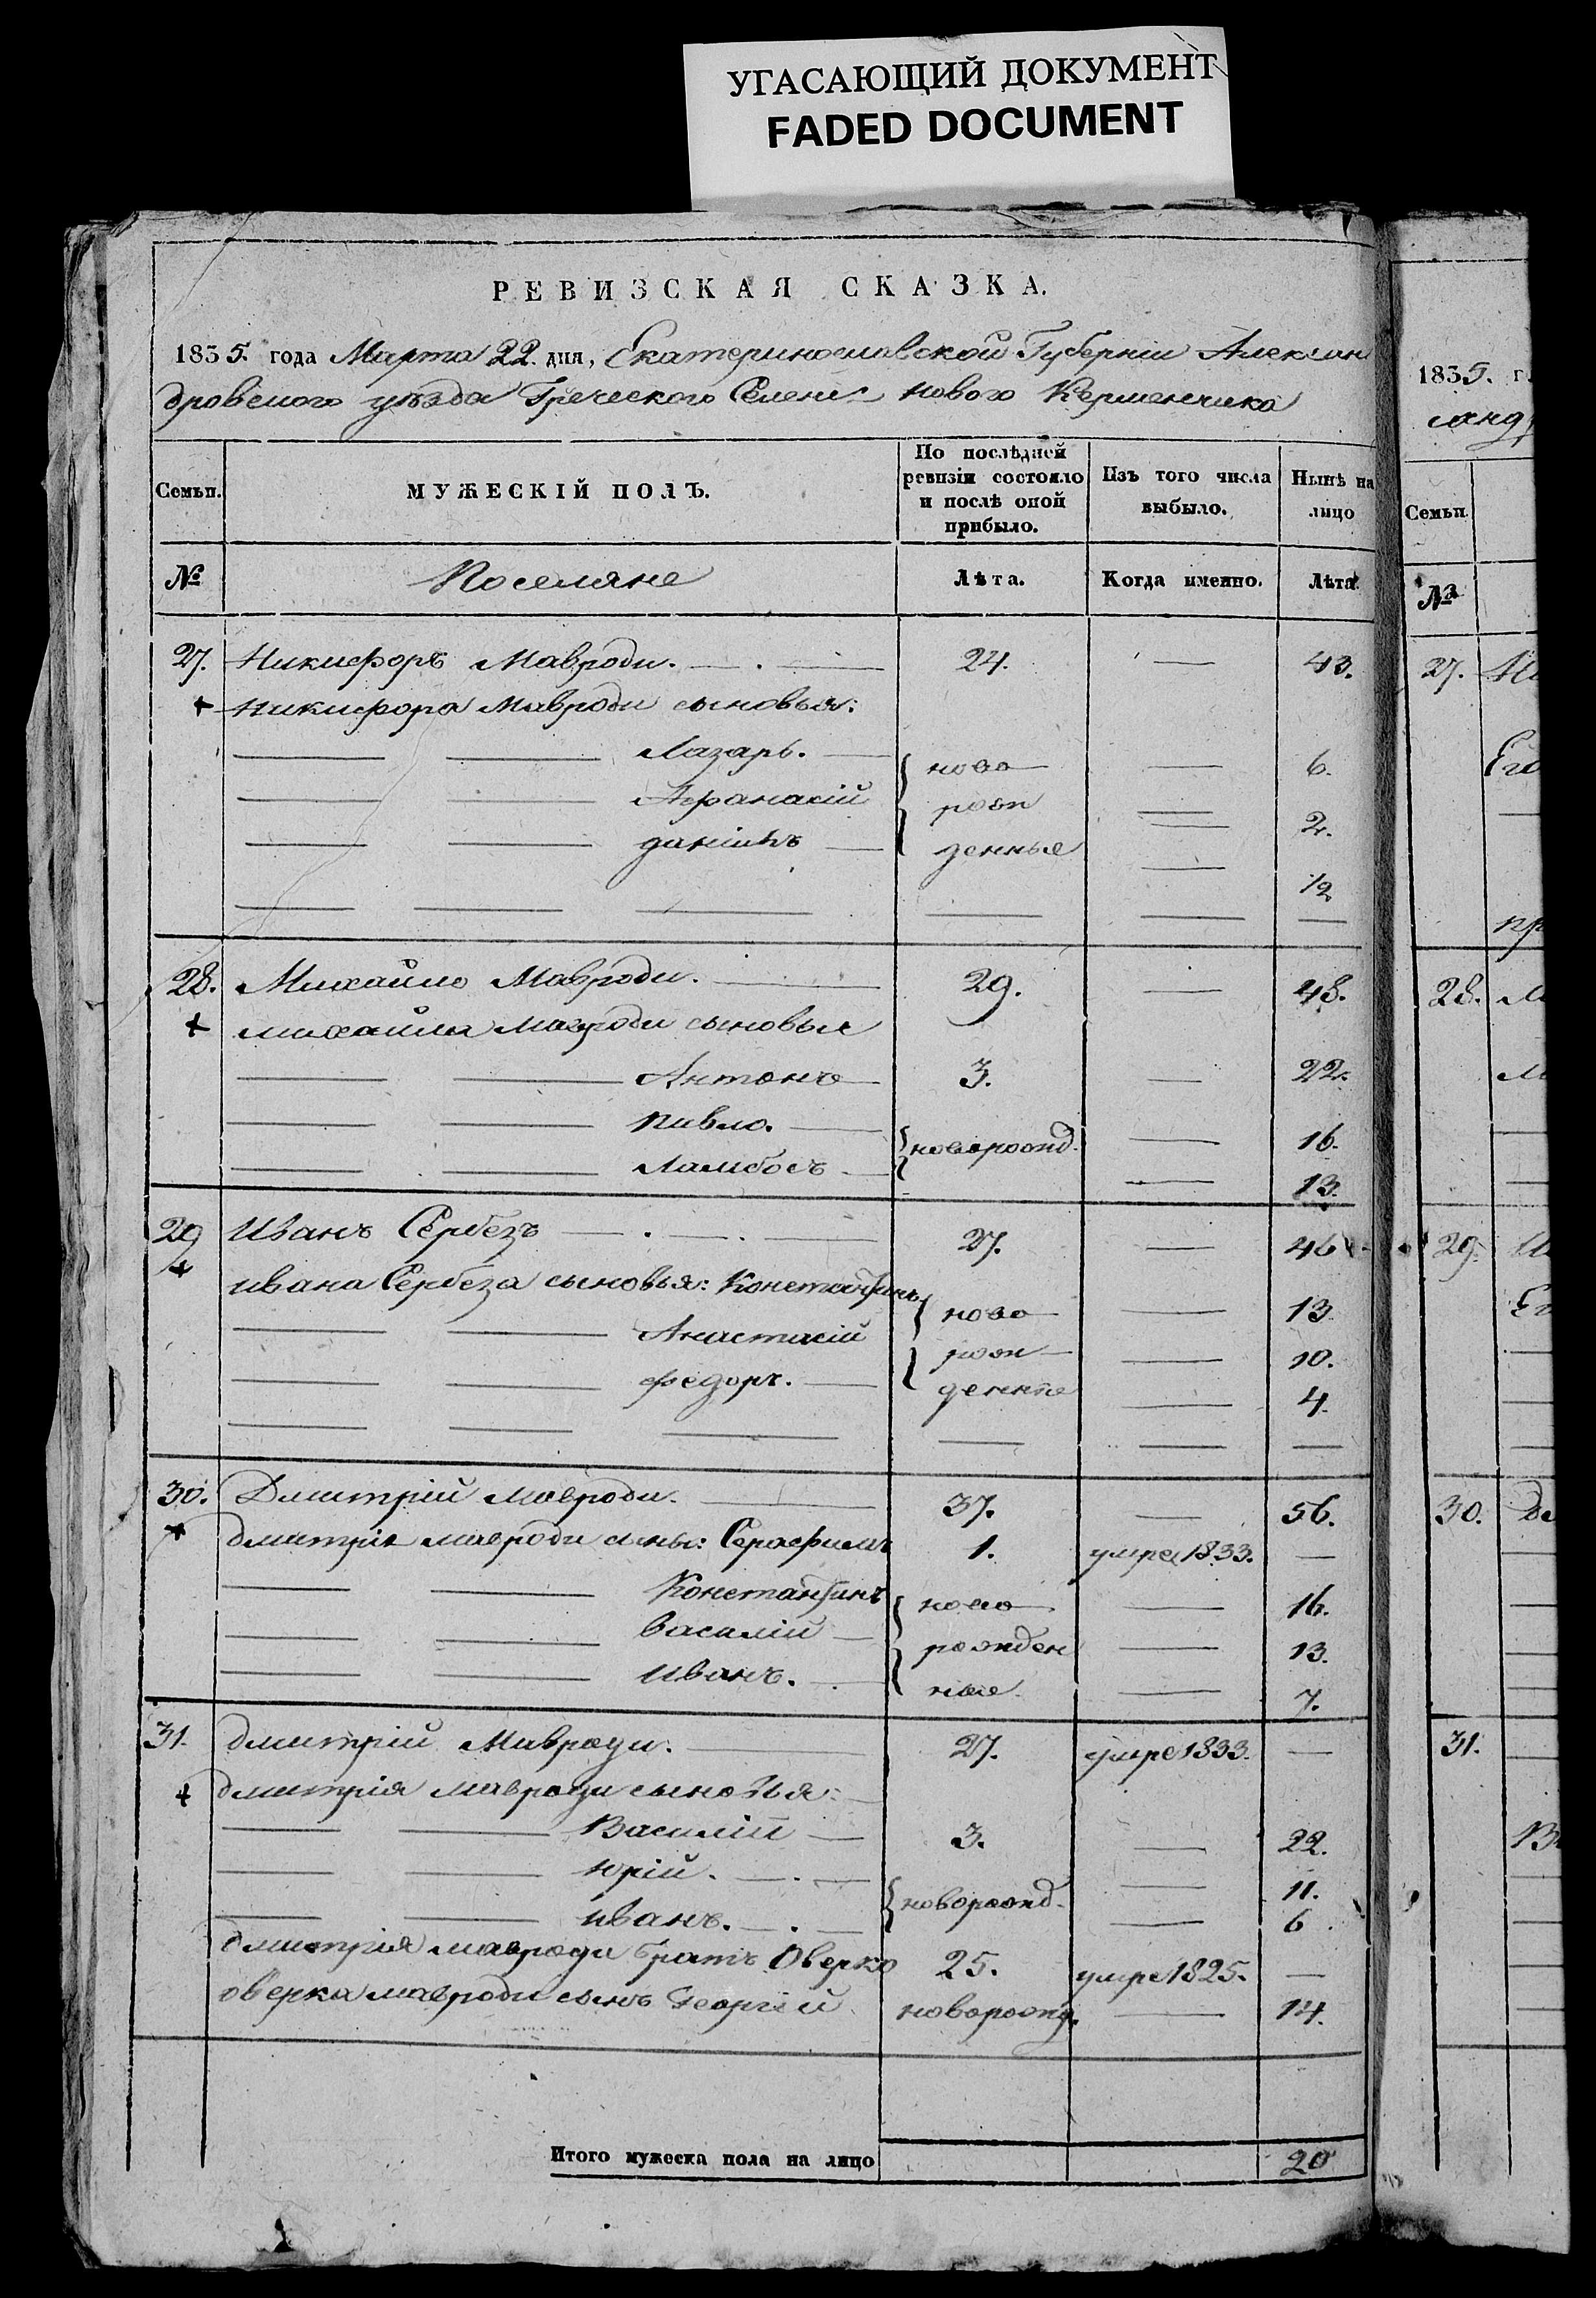 УГАСАЮЩИЙ ДОКУМЕНТ
FADED DOCUMENT
РЕВИЗСКАЯ СКАЗКА.
1835. года Марта 22. дня, Екатеринославской Губерніи Алексан
дровского уѣзда Греческого Селенія Нового Керменчика
Семьи. МУЖЕСКІЙ ПОЛЪ. По послѣдней ревизіи состояло и послѣ оной прибыло. Изъ того числа выбыло. Нынѣ на лицо
№ Поселяне Лѣта. Когда именно. Лѣта.
27. Никифоръ Мавроди. 24. — 43.
+ Никифора Мавроди сыновья:
Лазарь. ново — 6.
Афанасій рож — 2.
даніилъ денные — 1/2
28. Михайло Мавроди. 29. — 48.
+ михайла Мавроди сыновья
Антонъ 3. — 22.
павло. — 16.
Ламбосъ новорожд. — 13.
29 Иванъ Сербезъ 27. — 46
+ ивана Сербеза сыновья: Константинъ ново — 13.
Анастасій рож — 10.
федоръ. денные — 4.
30. Дмитрій мавроди. 37. — 56.
+ дмитрія мавроди сыны: Серафимъ 1. умре 1833. —
Константинъ ново — 16.
василій рожден — 13.
иванъ. ные — 7.
31. дмитрій Мавроди. 27. умре 1833. —
+ дмитрія мавроди сыновья:
Василій 3. — 22.
юрій. — 11.
иванъ. новорожд. — 6
дмитрія мавроди братъ Оверко 25. умре 1825. —
оверка мавроди сынъ Георгій новорожд. — 14.
Итого мужеска пола на лицо 20
1835. г.
санд
Семьи
№
27.
Его
пр
28. М
м
29. И
Ег
30. Дм
31.
В